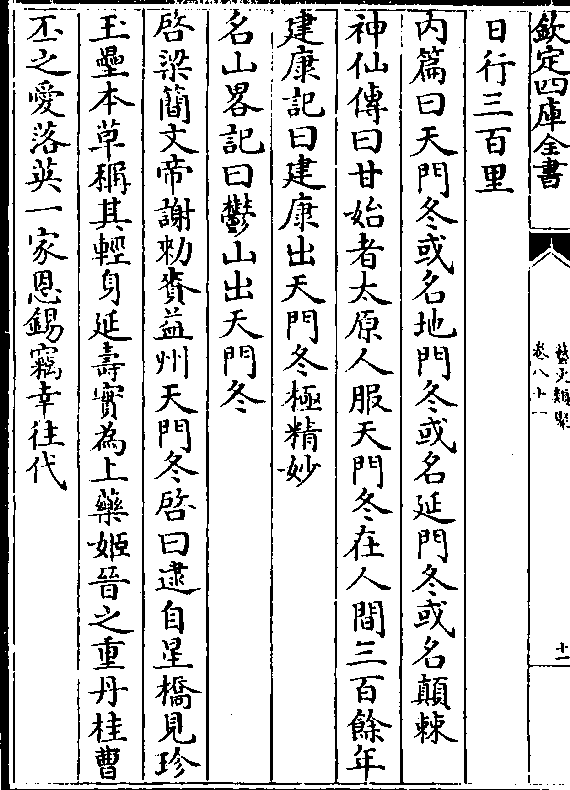 欽定四庫全書
藝文類聚
卷八十一
十一
日行三百里
内篇曰天門冬或名地門冬或名延門冬或名顛棘
神仙傳曰甘始者太原人服天門冬在人間三百餘年
建康記曰建康出天門冬極精妙
名山畧記曰鬱山出天門冬
啓梁簡文帝謝勑賚益州天門冬啓曰逮自星橋見珍
玉壘本草稱其輕身延壽實為上藥姬晉之重丹桂曹
丕之愛落英一家恩錫竊幸往代